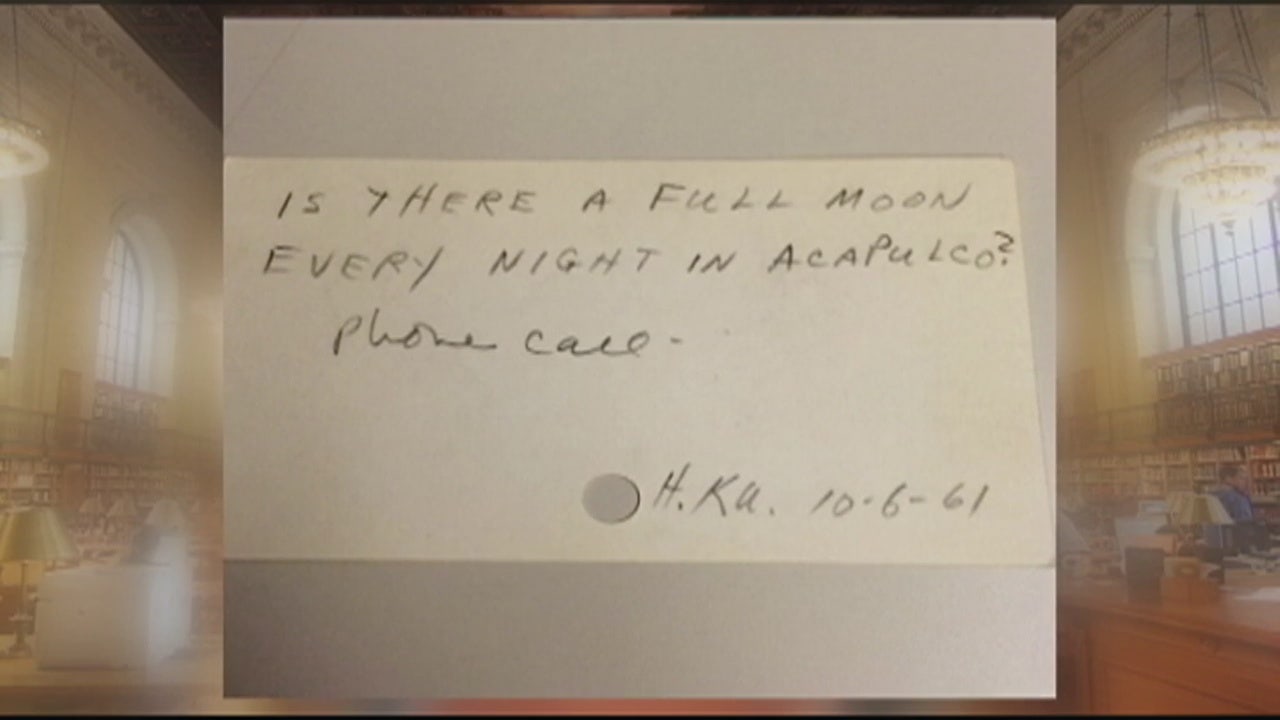 IS THERE A FULL MOON
EVERY NIGHT IN ACAPULCO?
phone call.
H.Ka. 10-6-61